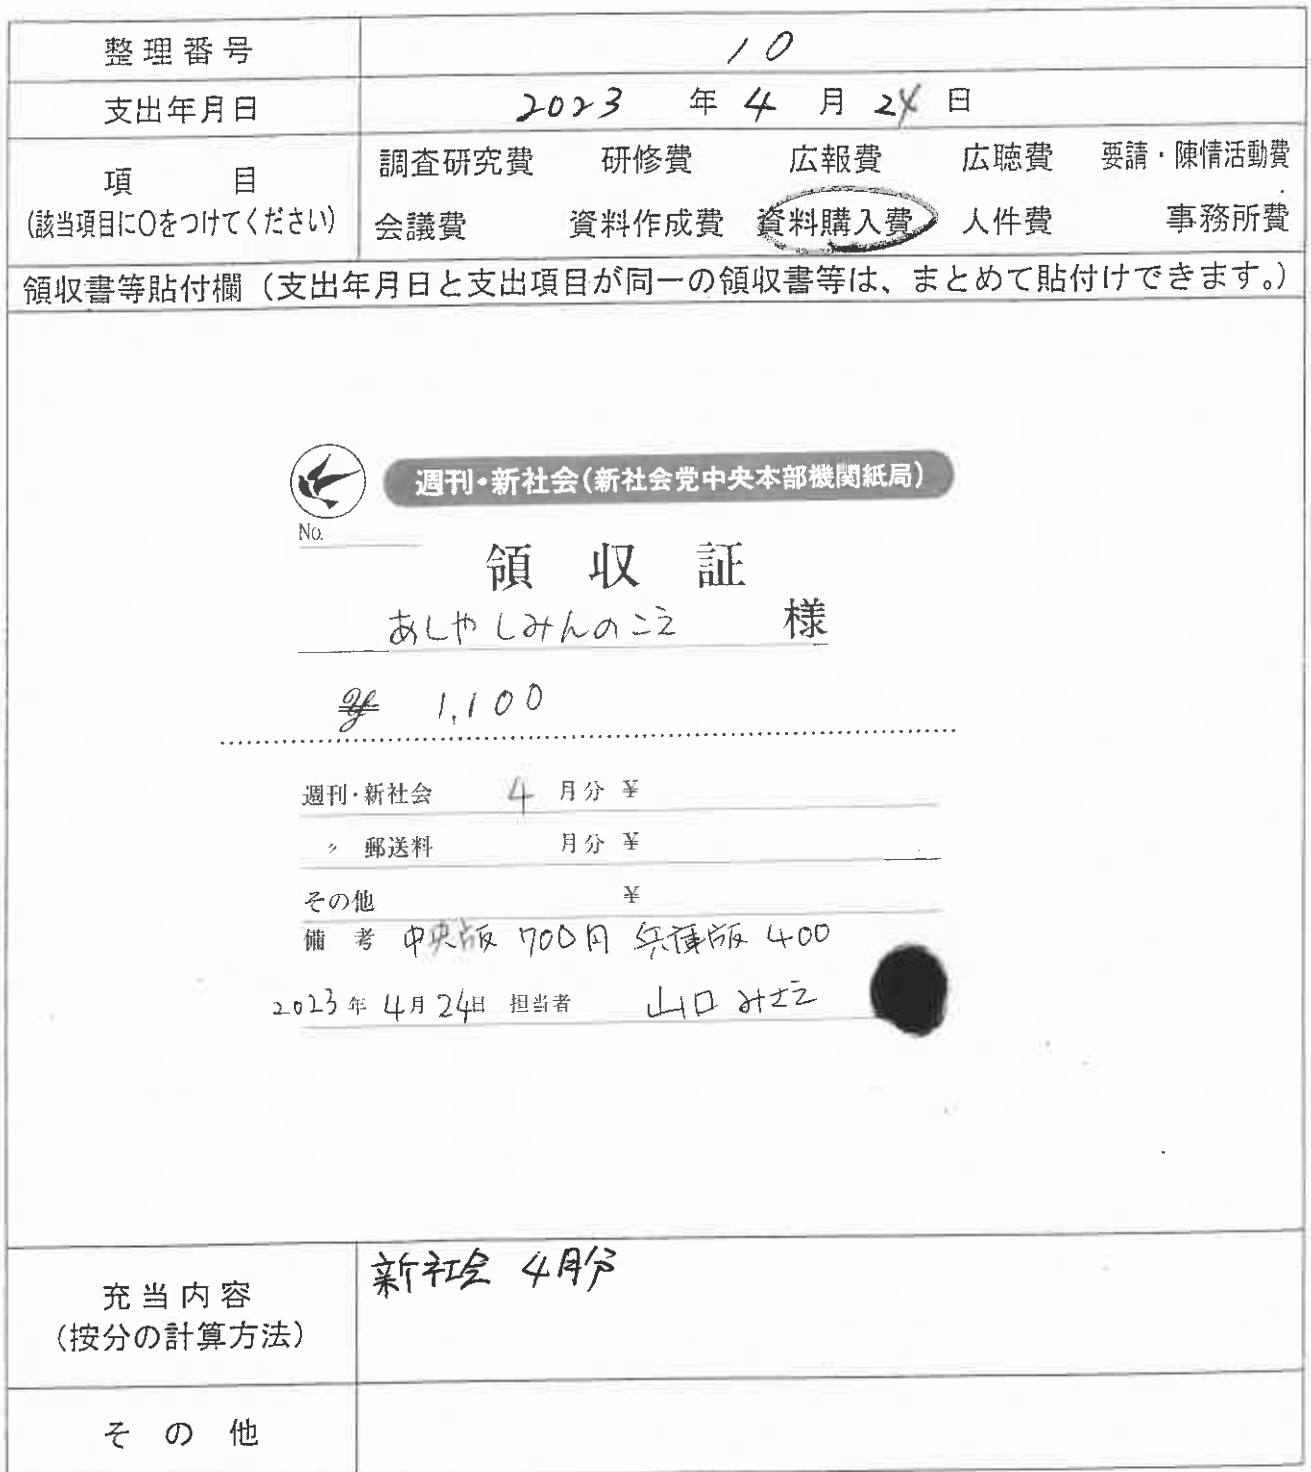 整理番号 10
支出年月日 2023 年 4 月 24 日
項 目
(該当項目に○をつけてください)
調査研究費 研修費 広報費 広聴費 要請・陳情活動費
会議費 資料作成費 資料購入費 人件費 事務所費
領収書等貼付欄(支出年月日と支出項目が同一の領収書等は、まとめて貼付けできます。)
週刊・新社会(新社会党中央本部機関紙局)
No.
領 収 証
あしやしみんのこえ 様
¥ 1,100
週刊・新社会 4 月分 ¥
〃 郵送料 月分 ¥
その他 ¥
備 考 中央版 700円 兵庫版 400
2023 年 4 月 24 日 担当者 山口 みさえ
充当内容
(按分の計算方法)
新社会 4月分
そ の 他